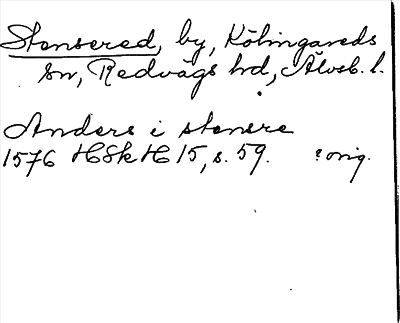 Stensered, by, Kölingareds
sn, Redvägs hd, Älvsb. l.
Anders i stensre
1576 HSkH 15, s. 59. ? orig.